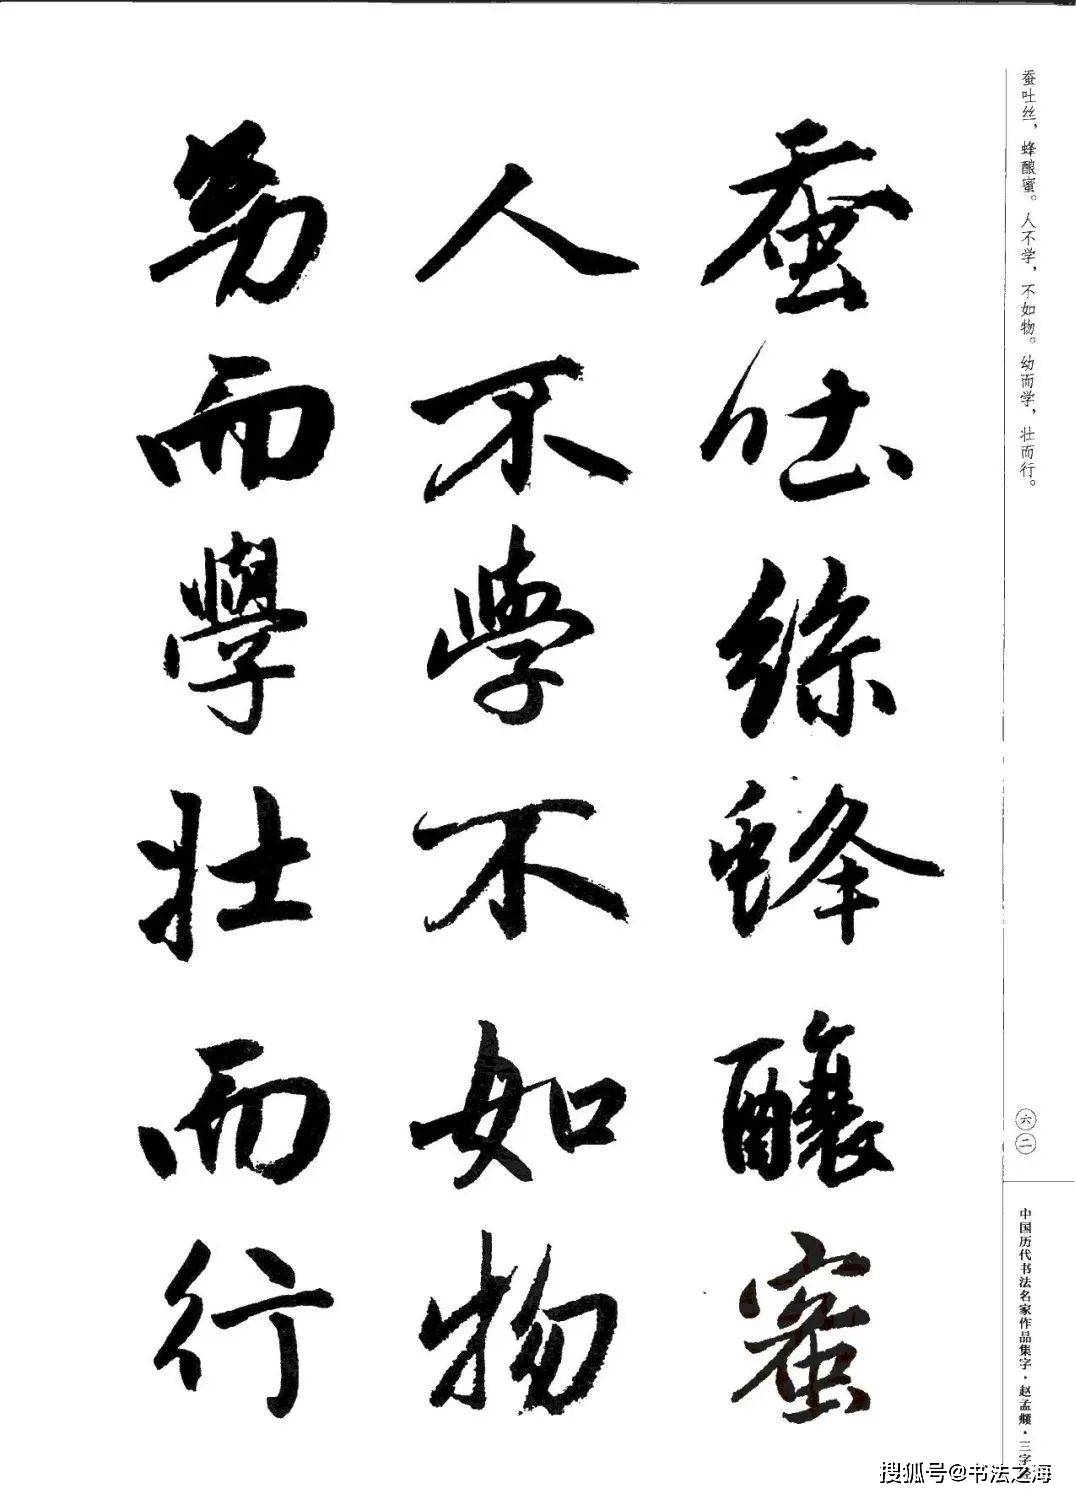 蚕吐丝，蜂酿蜜。人不学，不如物。幼而学，壮而行。
蚕吐絲蜂釀蜜
人不學不如物
㓜而學壮而行
六二
中国历代书法名家作品集字·赵孟頫·三字经
搜狐号@书法之海